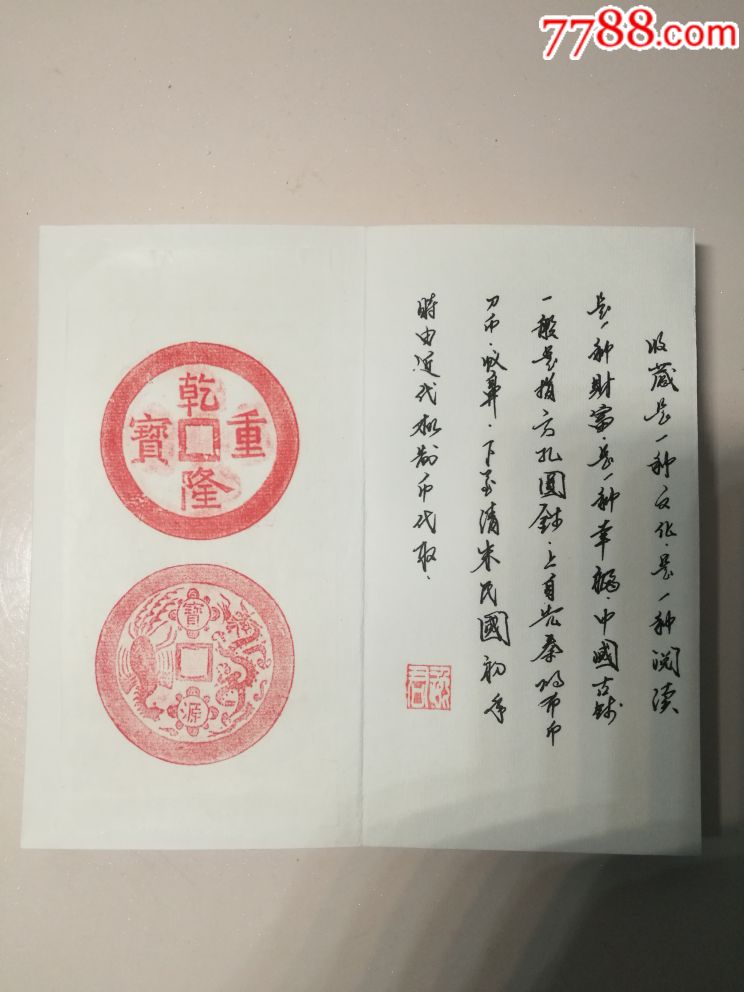 收藏是一种文化.是一种阅读
是一种財富.是一种幸福.中國古钱
一般是指方孔圓钱.上自先秦的布币
刀币.蚁鼻.下至清末民國初年
时由近代机制币代取.
乾隆重寶
寶源
7788.com